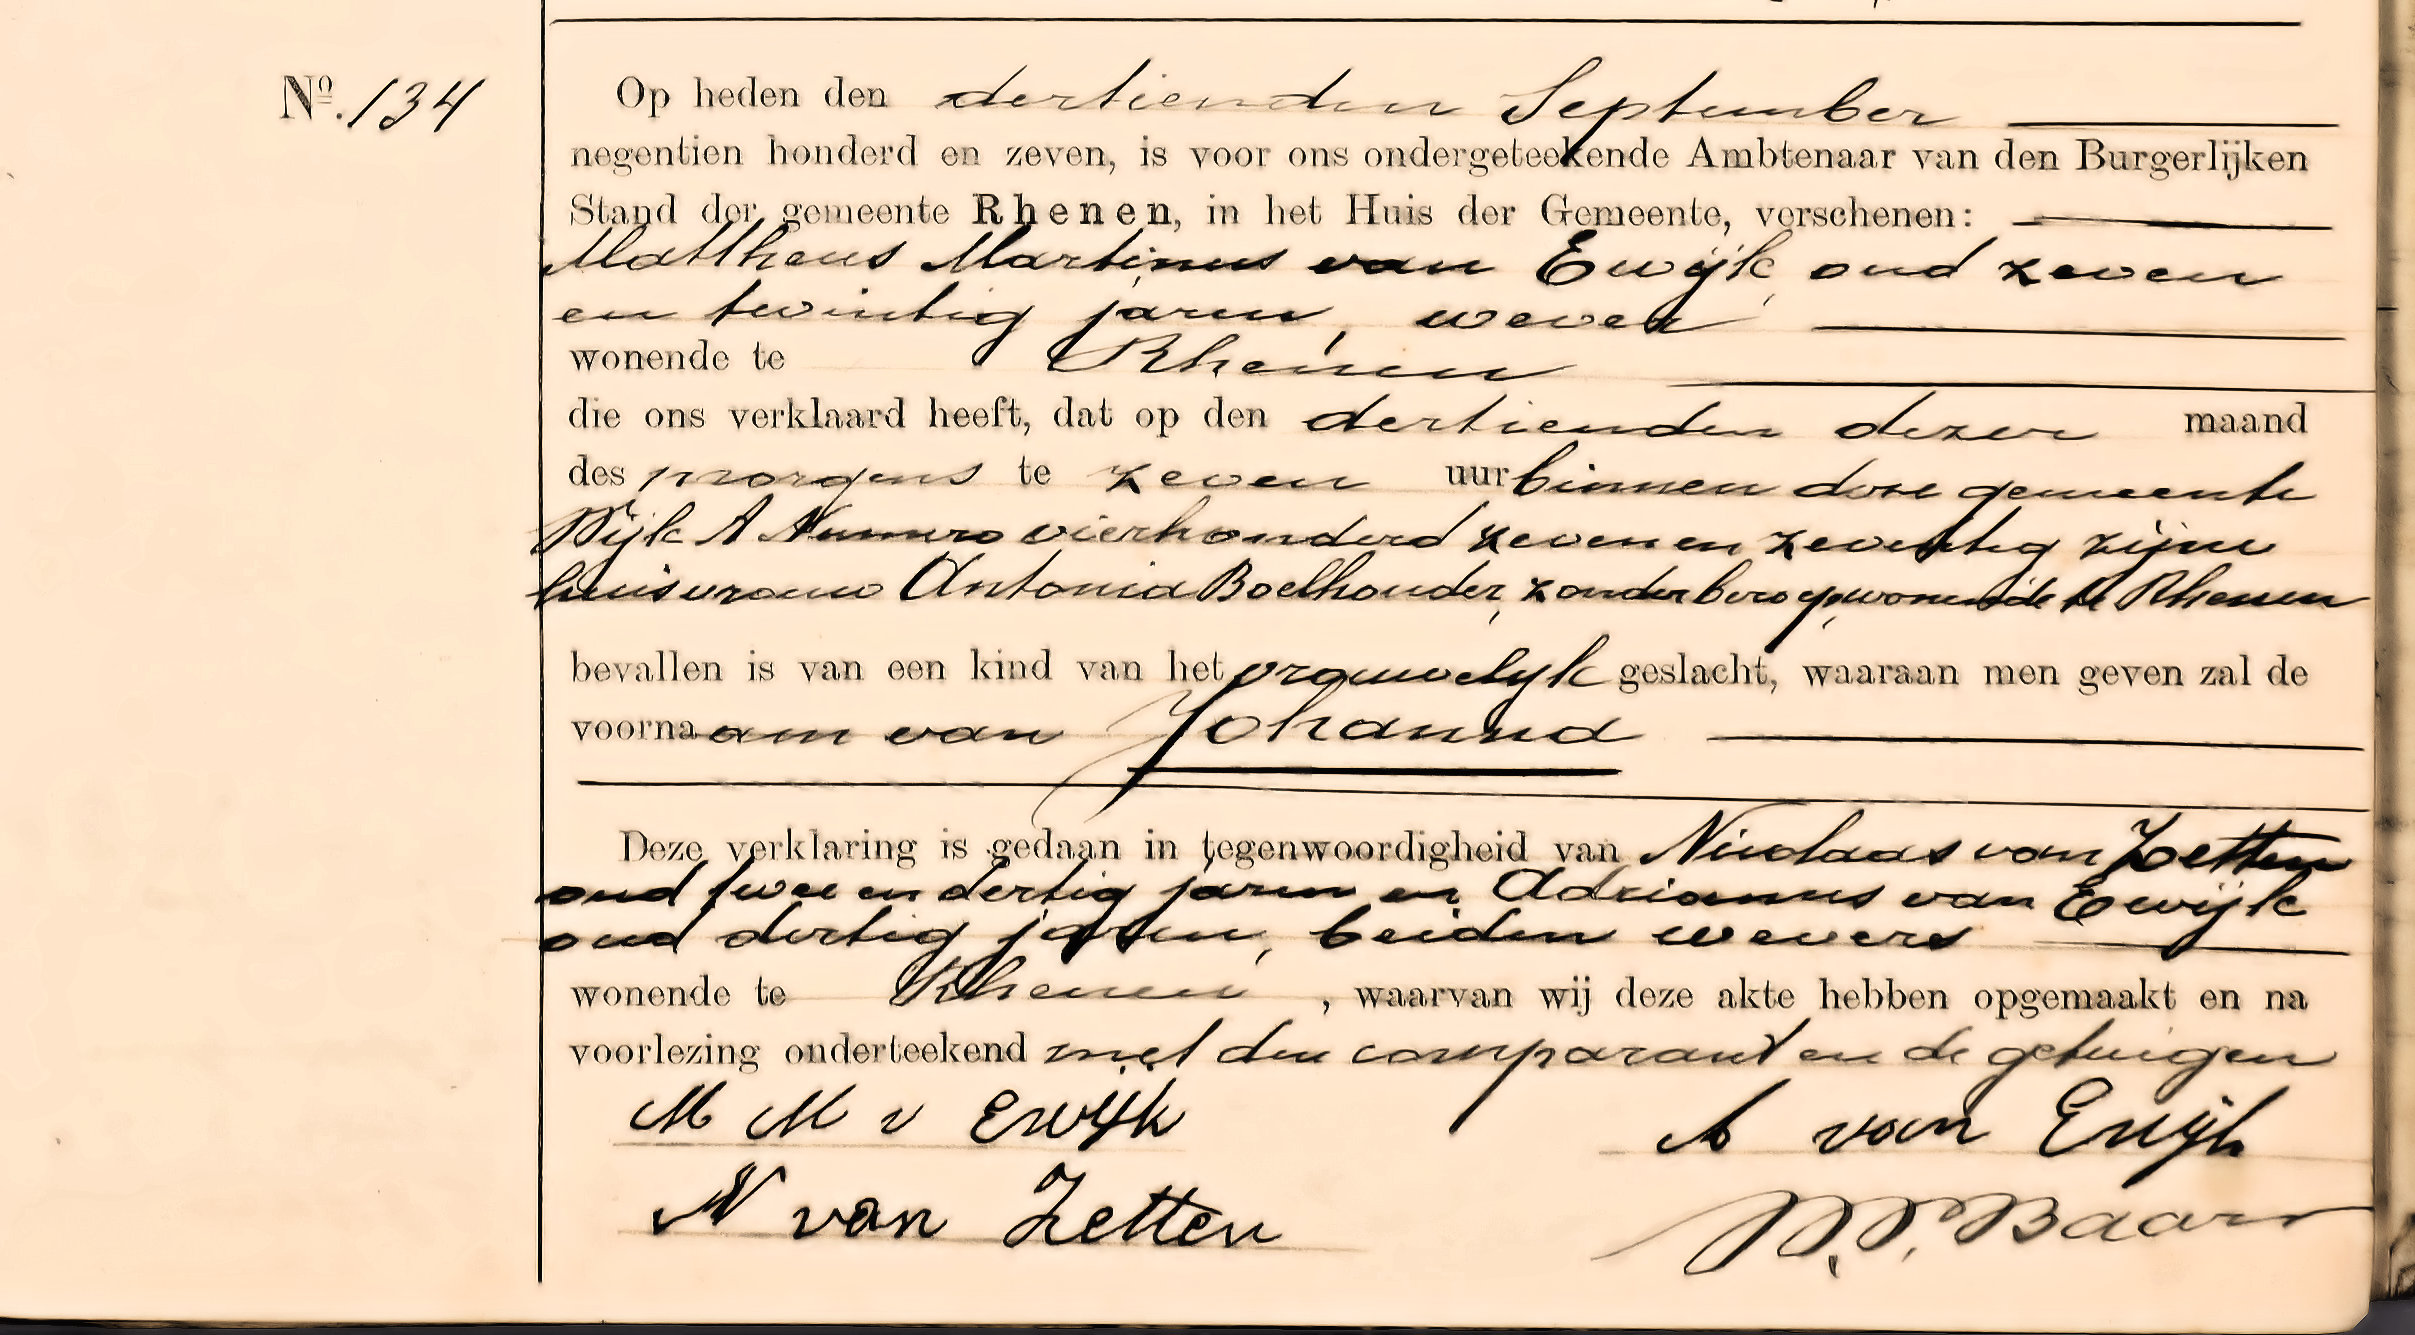 Nº. 134
Op heden den dertienden September
negentien honderd en zeven, is voor ons ondergeteekende Ambtenaar van den Burgerlijken
Stand der gemeente Rhenen, in het Huis der Gemeente, verschenen:
Mattheus Martinus van Ewijk, oud zeven
en twintig jaren, wever,
wonende te Rhenen
die ons verklaard heeft, dat op den dertienden dezer maand
des morgens te zeven uur binnen deze gemeente
Wijk A Numero vierhonderd zeven en zeventig zijne
huisvrouw Antonia Boelhouder, zonder beroep, wonende te Rhenen
bevallen is van een kind van het vrouwelijk geslacht, waaraan men geven zal de
voornaam van Johanna
Deze verklaring is gedaan in tegenwoordigheid van Nicolaas van Zetten
oud twee en dertig jaren en Adrianus van Ewijk
oud dertig jaren, beiden wevers
wonende te Rhenen, waarvan wij deze akte hebben opgemaakt en na
voorlezing onderteekend met den comparant en de getuigen
M M v Ewijk
A van Ewijk
N van Zetten
Baars